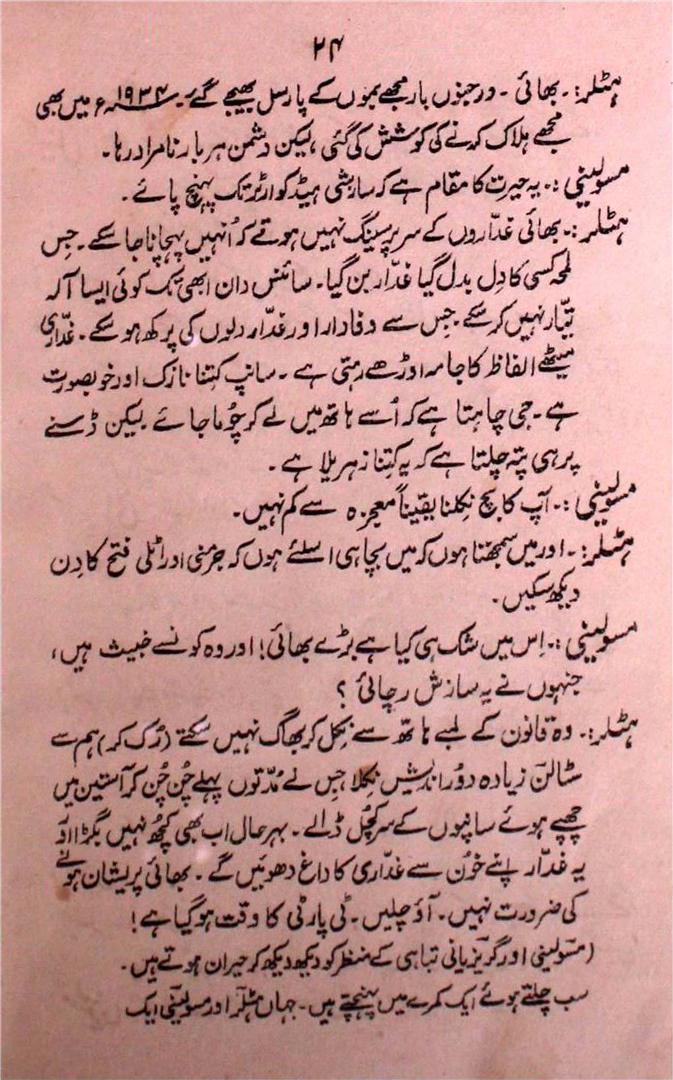 ۲۴
ہٹلر:۔ بھائی۔ درجنوں بار مجھے بموں کے پارسل بھیجے گئے۔ ۱۹۳۴ء میں بھی
مجھے ہلاک کرنے کی کوشش کی گئی، لیکن دشمن ہر بار نامراد رہا۔
مسولینی:۔ یہ حیرت کا مقام ہے کہ سازشی ہیڈکوارٹر تک پہنچ پائے۔
ہٹلر:۔ بھائی غدّاروں کے سر پر سینگ نہیں ہوتے کہ اُنہیں پہچانا جا سکے۔ جِس
لمحہ کسی کا دِل بدل گیا غدّار بن گیا۔ سائنس دان ابھی تک کوئی ایسا آلہ
تیّار نہیں کر سکے جِس سے وفادار اور غدّار دلوں کی پرکھ ہو سکے۔ غدّاری
میٹھے الفاظ کا جامہ اوڑھے رہتی ہے۔ سانپ کِتنا نازک اور خوبصورت
ہے۔ جی چاہتا ہے کہ اُسے ہاتھ میں لے کر چُوما جائے لیکن ڈسنے
پر ہی پتہ چلتا ہے کہ یہ کِتنا زہریلا ہے۔
مسولینی:۔ آپ کا بچ نِکلنا یقیناً معجزہ سے کم نہیں۔
ہٹلر:۔ اور میں سمجھتا ہوں کہ میں بچا ہی اسلئے ہوں کہ جرمنی اور اٹلی فتح کا دِن
دیکھ سکیں۔
مسولینی:۔ اِس میں شک ہی کیا ہے بڑے بھائی! اور وہ کونسے خبیث ہیں،
جنہوں نے یہ سازش رچائی؟
ہٹلر:۔ وہ قانون کے لمبے ہاتھ سے نِکل کر بھاگ نہیں سکتے (رُک کر) ہم سے
سٹالن زیادہ دُور اندیش نِکلا جِس نے مُدّتوں پہلے چُن چُن کر آستین میں
چھپے ہوئے سانپوں کے سر کچل ڈالے۔ بہرحال اب بھی کچھ نہیں بگڑا اور
یہ غدّار اپنے خون سے غدّاری کا داغ دھوئیں گے۔ بھائی پریشان ہونے
کی ضرورت نہیں۔ آؤ چلیں۔ ٹی پارٹی کا وقت ہو گیا ہے!
(مسولینی اور گریزیانی تباہی کے منظر کو دیکھ دیکھ کر حیران ہوتے ہیں۔
سب چلتے ہوئے ایک کمرے میں پہنچتے ہیں۔ جہاں ہٹلر اور مسولینی ایک